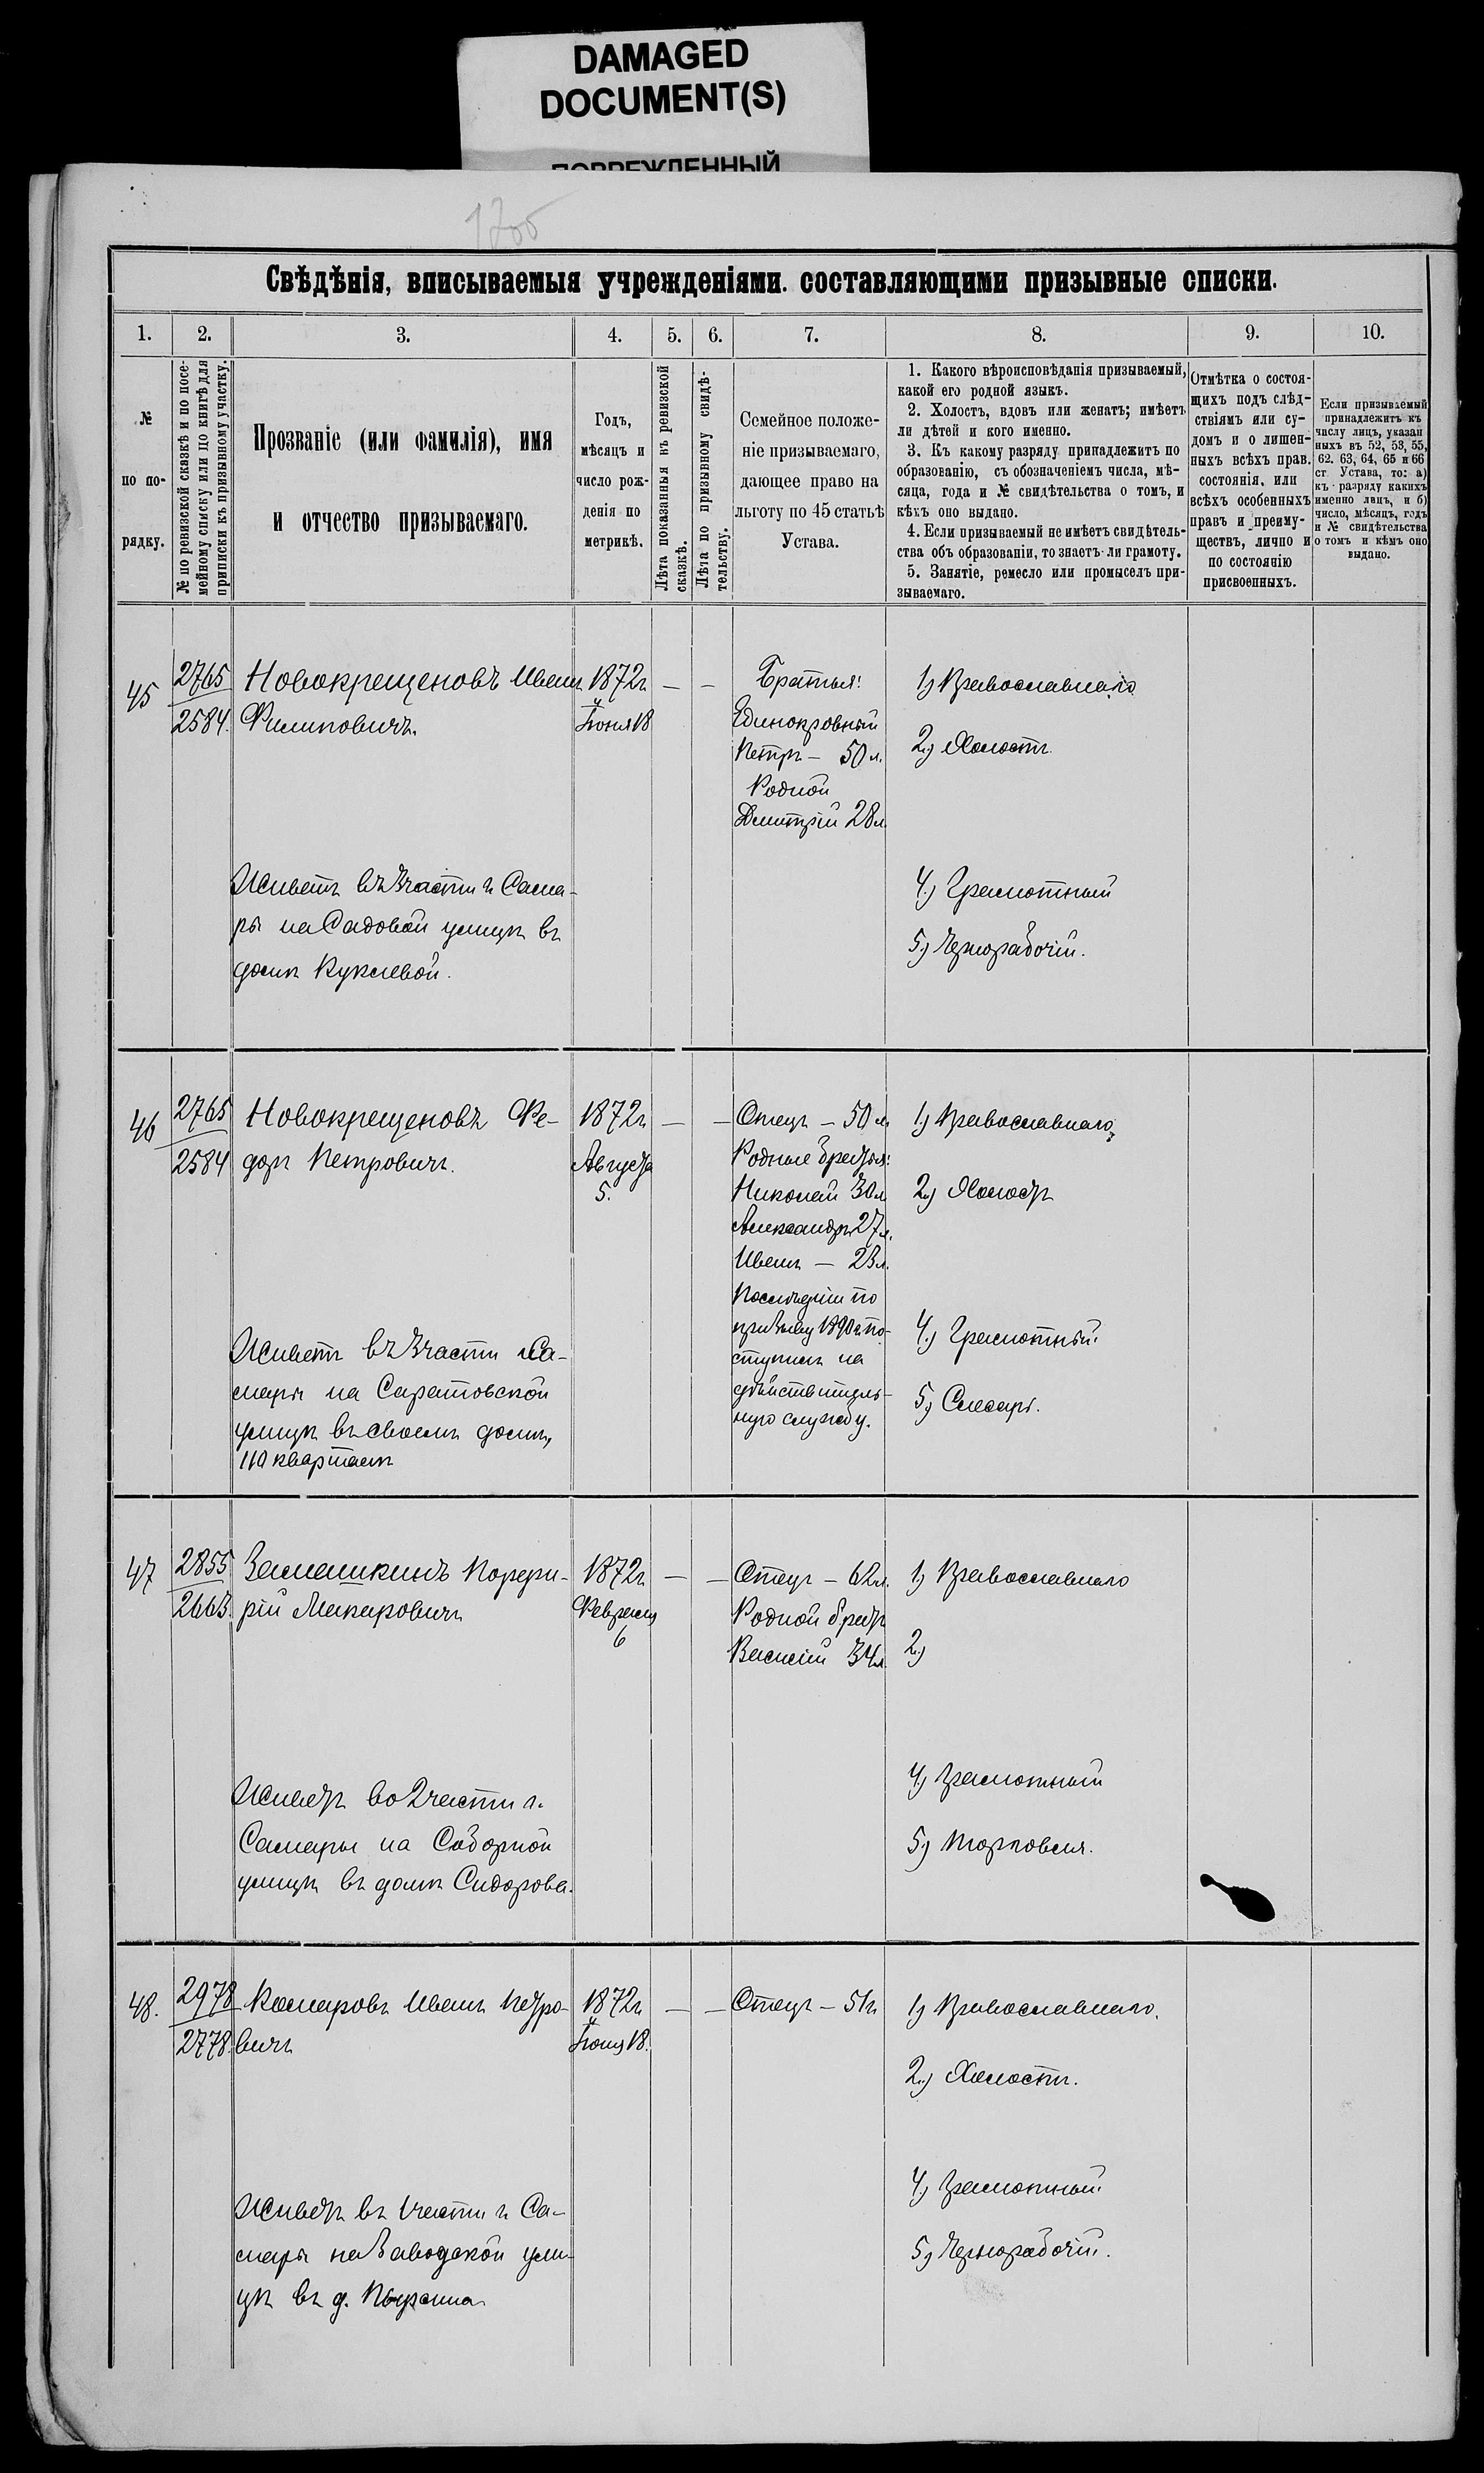 DAMAGED
DOCUMENT(S)
ПОВРЕЖДЕННЫЙ
Свѣдѣнія, вписываемыя учрежденіями. составляющими призывные списки.
1. 2. 3. 4. 5. 6. 7. 8. 9. 10.
№
по по-
рядку.
№ по ревизской сказкѣ и по посе-
мейному списку или по книгѣ для
приписки къ призывному участку.
Прозваніе (или фамилія), имя
и отчество призываемаго.
Годъ,
мѣсяцъ и
число рож-
денія по
метрикѣ.
Лѣта показанныя къ ревизской
сказкѣ.
Лѣта по призывному свидѣ-
тельству.
Семейное положе-
ніе призываемаго,
дающее право на
льготу по 45 статьѣ
Устава.
1. Какого вѣроисповѣданія призываемый,
какой его родной языкъ.
2. Холостъ, вдовъ или женатъ; имѣетъ
ли дѣтей и кого именно.
3. Къ какому разряду принадлежитъ по
образованію, съ обозначеніемъ числа, мѣ-
сяца, года и № свидѣтельства о томъ, и
кѣмъ оно выдано.
4. Если призываемый не имѣетъ свидѣтель-
ства объ образованіи, то знаетъ-ли грамоту.
5. Занятіе, ремесло или промыселъ при-
зываемаго.
Отмѣтка о состоя-
щихъ подъ слѣд-
ствіямъ или су-
домъ и о лишен-
ныхъ всѣхъ прав.
состоянія, или
всѣхъ особенныхъ
правъ и преиму-
ществъ, лично и
по состоянію
присвоенныхъ.
Если призываемый
принадлежитъ къ
числу лицъ, указан
ныхъ въ 52, 53, 55,
62. 63, 64, 65 и 66
ст Устава, то: а)
къ разряду какихъ
именно лицъ, и б)
число, мѣсяцъ, годъ
и № свидѣтельства
о томъ и кѣмъ оно
выдано.
45
2765
2584.
Новокрещеновъ Иванъ
Филиповичъ.
1872г
Іюня 18
— —
Братья:
Единокровный
Петръ — 50 л.
Родной
Дмитрій 28 л
1) Православнаго
2.) Холостъ.
4.) Грамотный
5) Чернорабочій.
Живетъ въ 3 части г Сама-
ры на Садовой улицѣ въ
домѣ Куклевой.
46
2765
2584
Новокрещеновъ Фе-
доръ Петровичъ.
1872г
Августа
5.
— —
Отецъ — 50 л
Родные братья:
Николай 30 л
Александръ 27 л.
Иванъ — 23 л.
Послѣдній по
призыву 1890 г по-
ступилъ на
дѣйствитель-
ную службу.
1) Православнаго
2.) Холостъ
4.) Грамотный
5) Слесарь.
Живетъ въ 3 части г Са-
мары на Саратовской
улицѣ въ своемъ домѣ,
110 кварталъ
47
2855
2663.
Замашкинъ Порфи-
рій Макаровичъ
1872г
Февраля
6
— —
Отецъ — 62 л.
Родной братъ
Василій 34 л.
1) Православнаго
2.)
4.) Грамотный
5) Торговля.
Живетъ во 2 части г.
Самары на Соборной
улицѣ въ домѣ Сидорова.
48.
2978
2778.
Комаровъ Иванъ Петро-
вичъ
1872г
Іюня 18.
— —
Отецъ — 51 г
1) Православнаго.
2.) Холостъ.
4.) Грамотный
5) Чернорабочій.
Живетъ въ 1 части г Са-
мары на Заводской ули-
цѣ въ д.